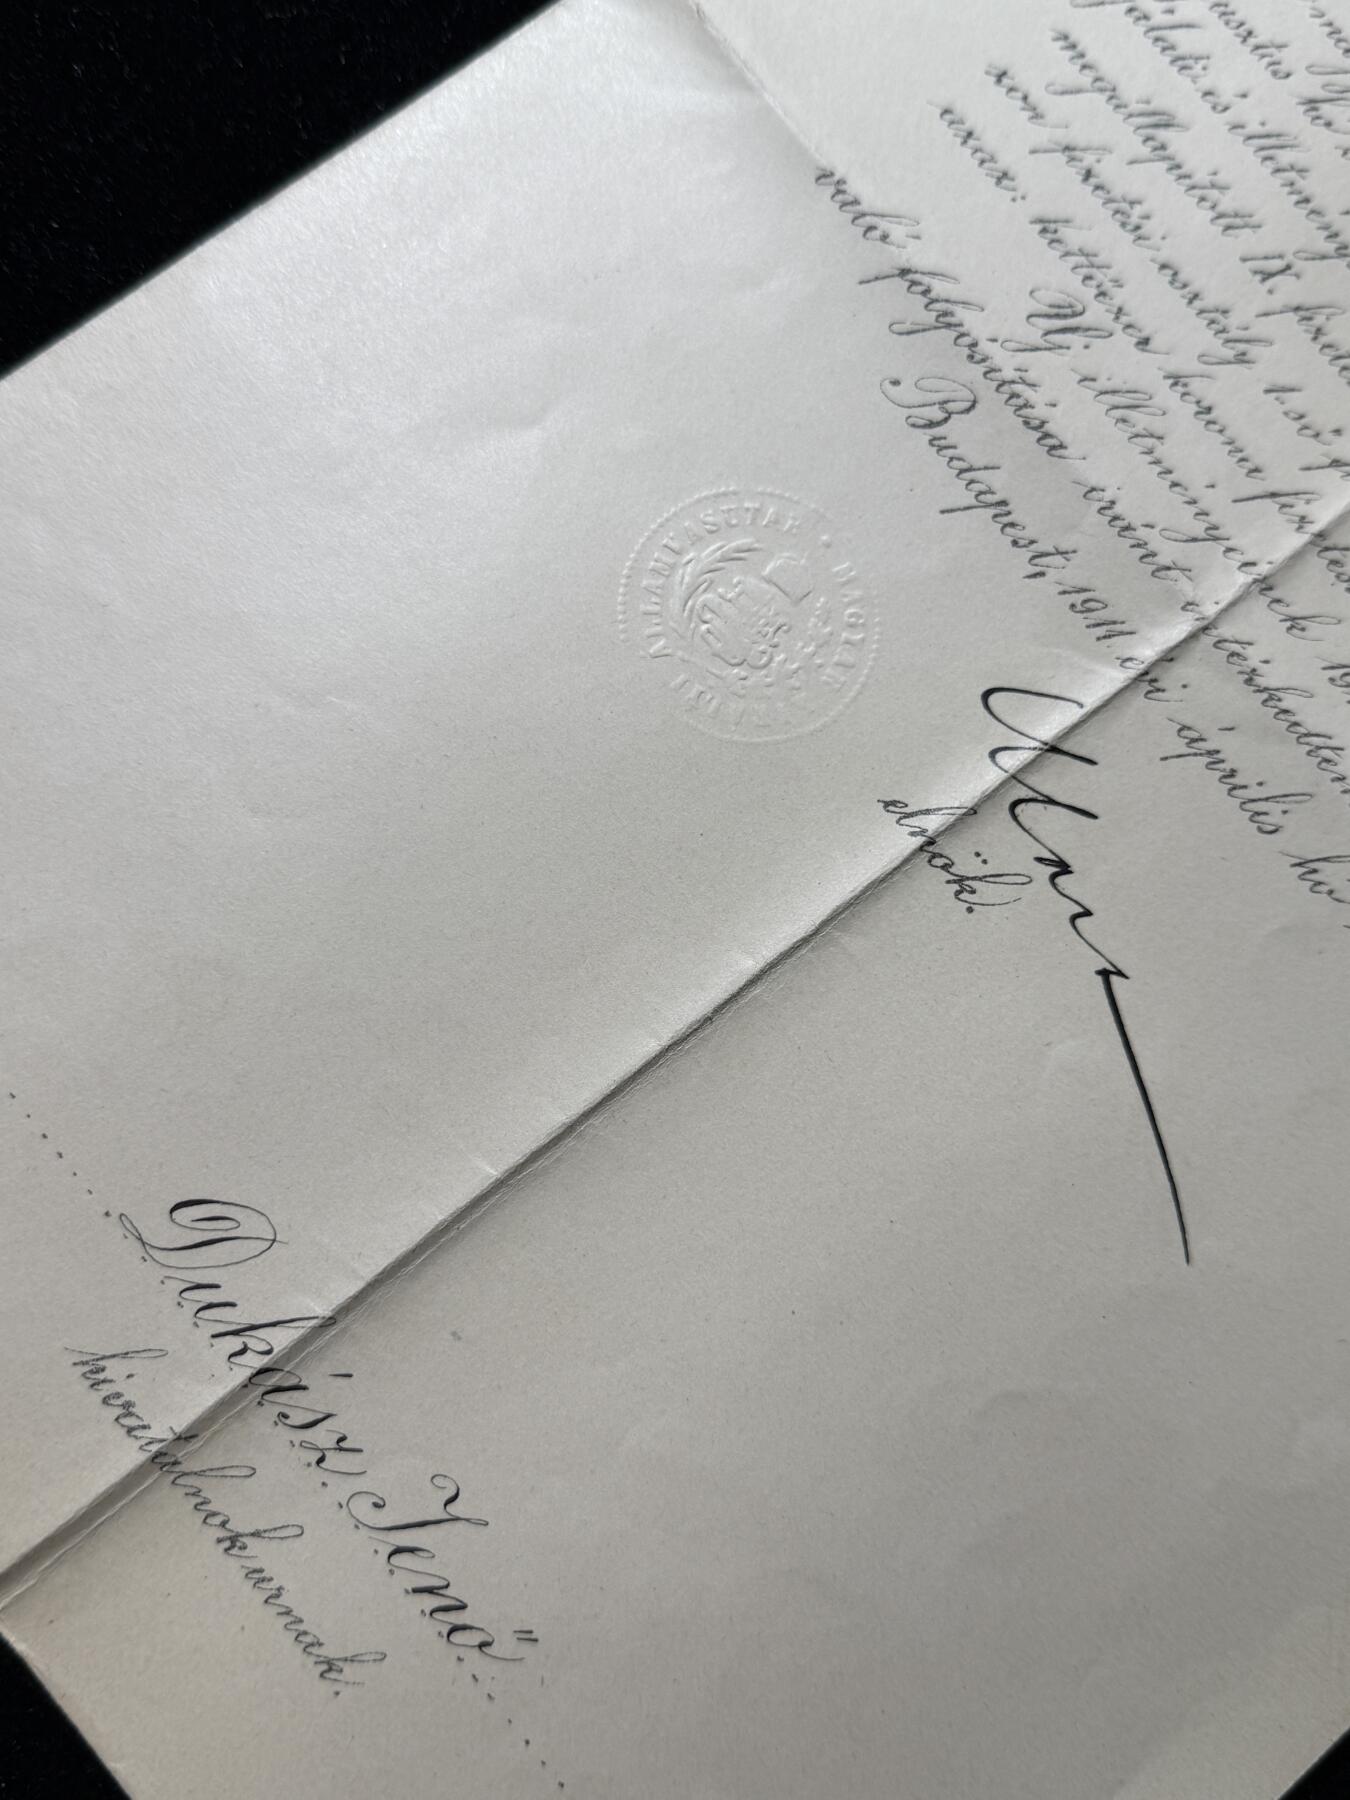 usztus hó
gálati és illetmény
megállapitott IX. fizeté
zon fizetési osztály 1.ső f
azaz: kettőezer korona fiz
Uj illetményeinek 19
való folyósitása iránt intézkedtem
Budapest, 1911. évi április hó
elnök.
MAGYAR KIRÁLYI ÁLLAMVASUTAK
Dukász Jenő
hivatalnok urnak.